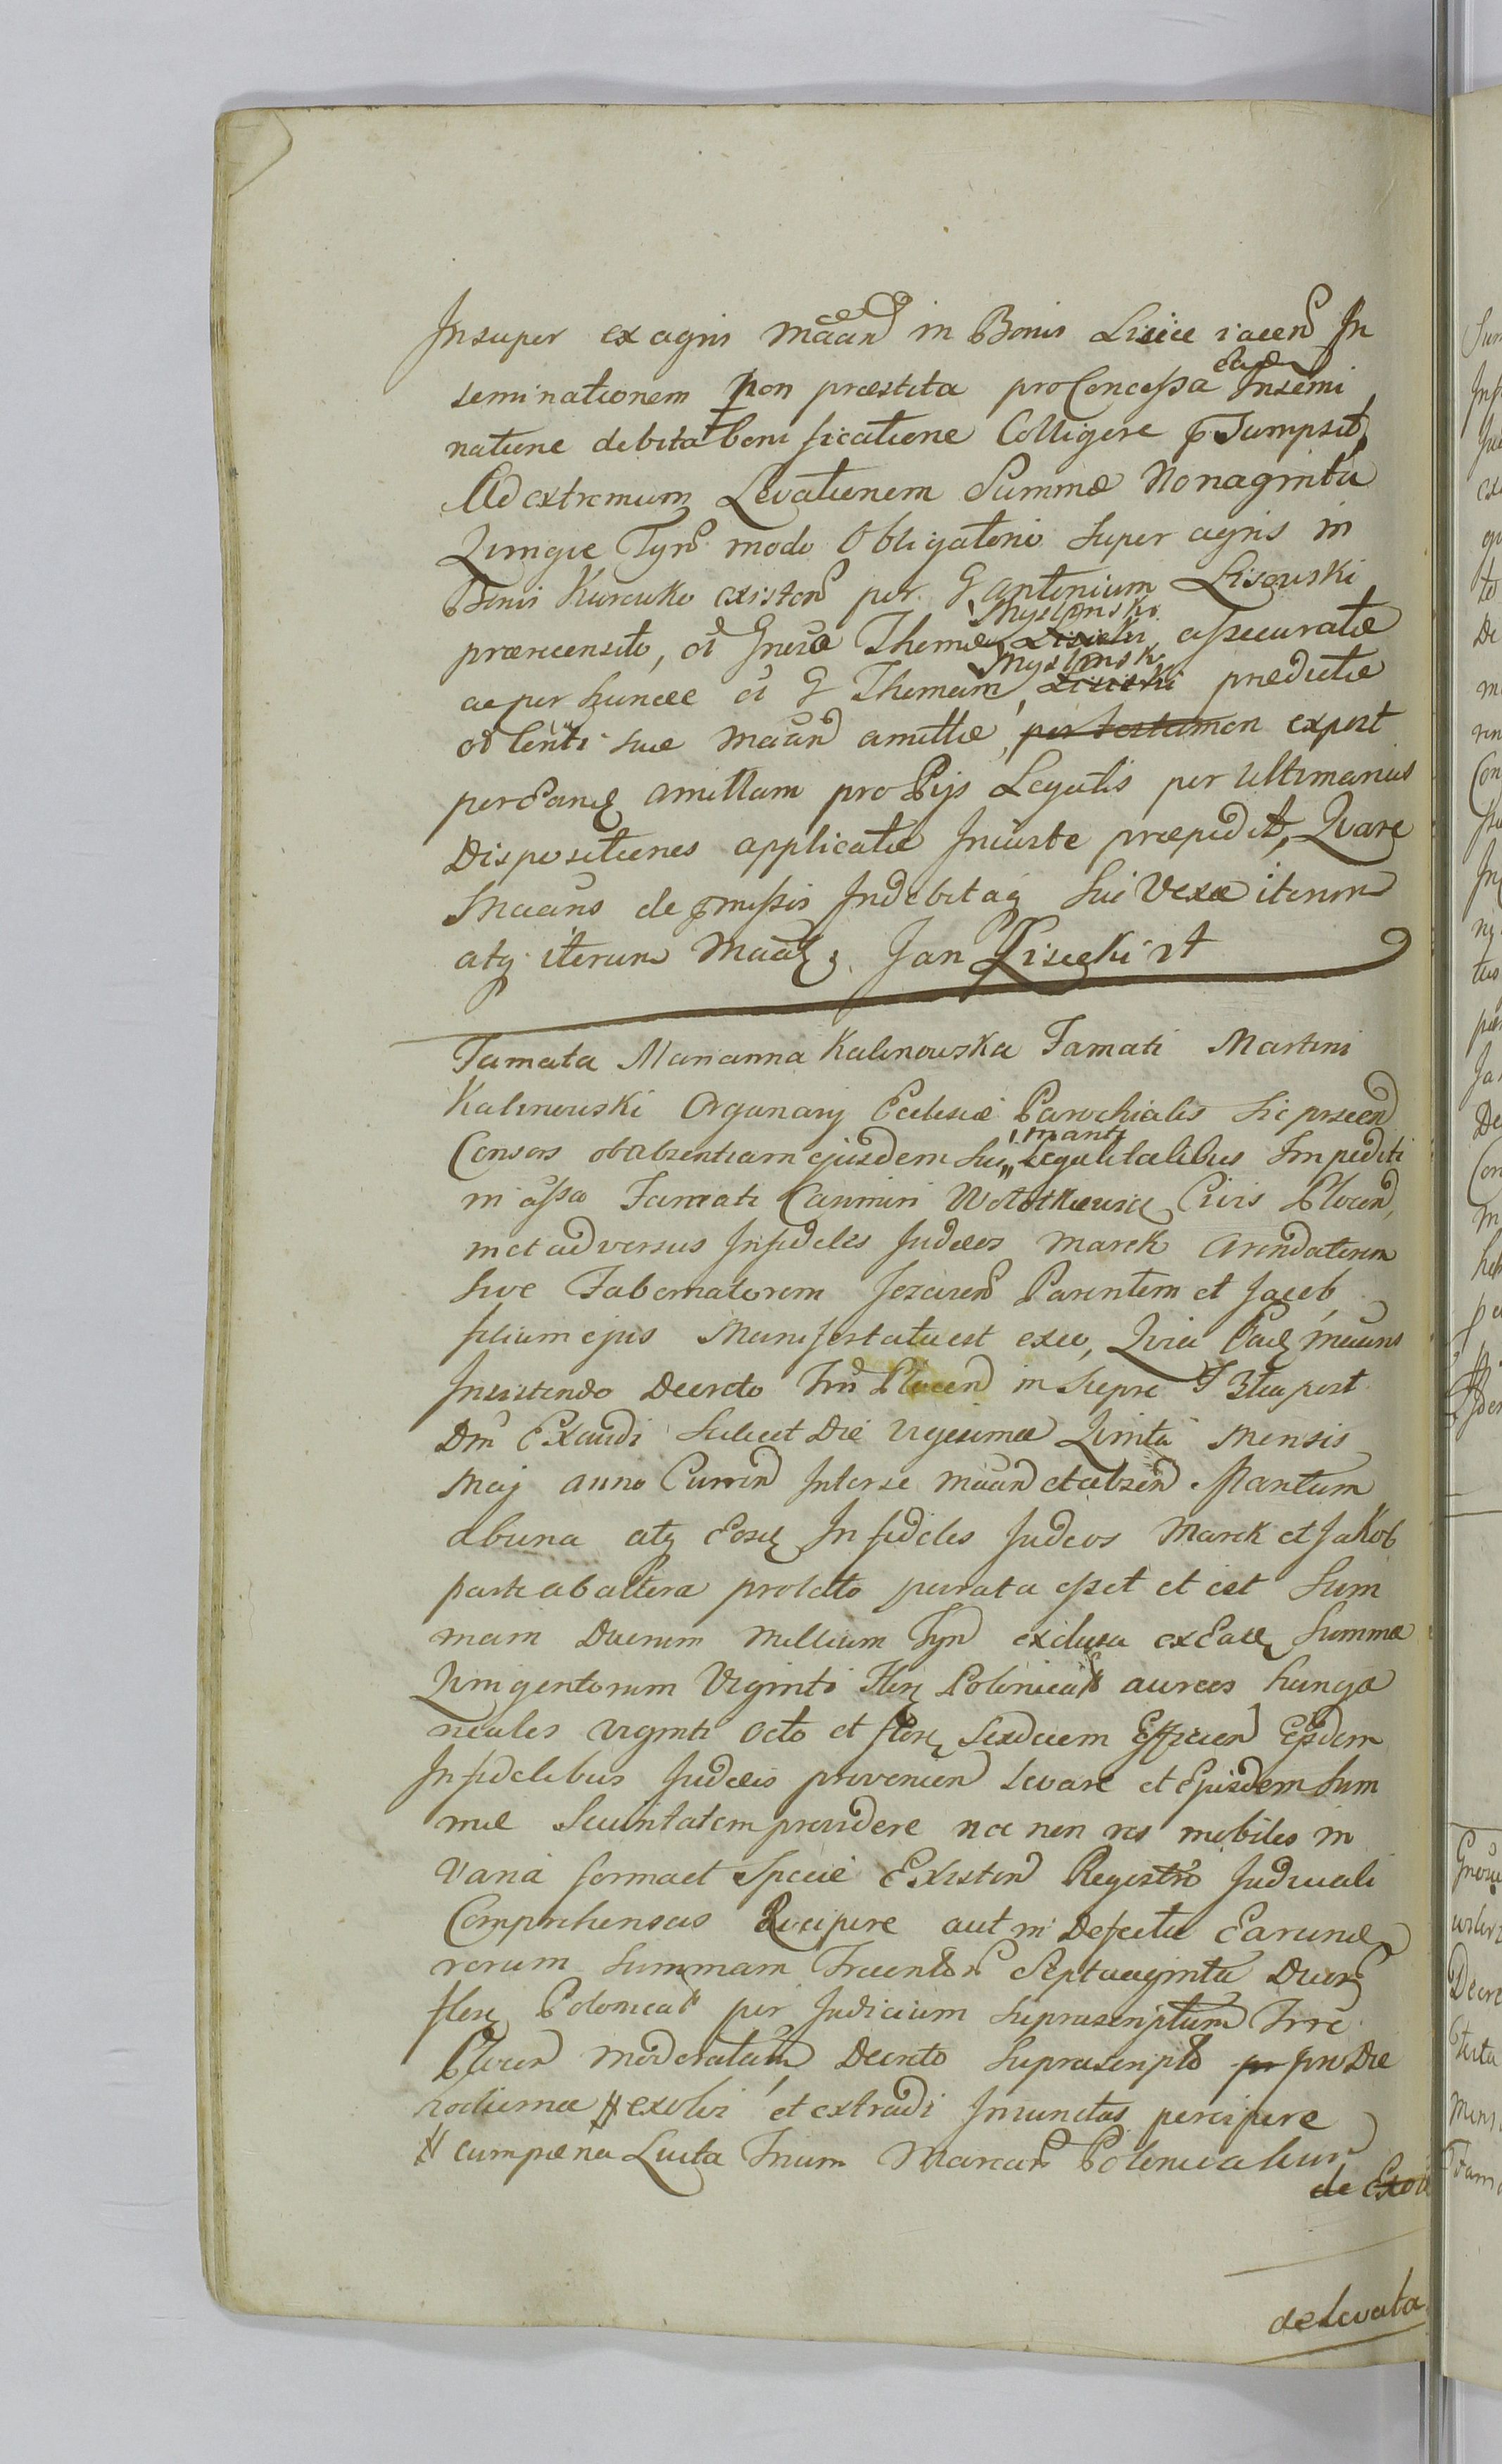 Insuper ex agris Māan in Bonis Lisice iacen In
seminationem non præstita pro Concessa eade Insemi
natione debita boni ficatione Colligere p̄sumpsit,
Ad extremum Levationem Summæ Nonaginta
Quinque Tyn modo Obligatorio super agris in
Bonis Kurowko existen per G Antonium Lisowski
prærecensito, Gnosæ Thomæ Lisicki Myslinski assecuratæ
ac per hunce G Thomam Lisicki Myslinski prædictæ
suæ Māan amittæ, per testamen expost
per Eanq amittam pro Pijs Legatis per ultimarius
Dispositiones applicatæ Iniuste præpedit, Quare
Māans de p̄missis Indebitaq sui Vexa iterum
atq iterum Māat. Jan Lisicki rt
Famata Marianna Kalinowska Famati Martini
Kalinowski Organarij Eclesiæ Parochialis
Consors ob absentiam ejusdem sui mariti Legalitalibus Impediti
in assa Famati Casimiri Wolotkiewicz Civis Plocen,
in et adversus Infideles Judæos Marek Arendatorem
sive Tabernatorem Parentem et Jacob
filium ejus Manifestata est exeo, Quia Eadq māans
Insistendo Decreto Plocen in Sepre F 3tia post
Dm̄ Exaudi scilicet Die vigesima Quinta Mensis
Maij anno Curren Inter se māan et absen Maritum
ab una atq Eosq Infideles Judeos Marek et Jakob
parte ab altera prolato parata esset et est Sum
mam Duorum Millium Tyn exclusa ex Eaq Summa
Quingentorum Viginti flor Polonical aureos hunga
ricales viginti octo et flor Sexdecem Efficien Eisdem
Infidelibus Judæis provenien Levare et Ejusdem Sum
mæ Securitatem providere nec non res mobiles in
varia forma et Specie Existen Registro Judiciali
Comprehensas Recipere aut in Defectu Earund
rerum Summam Trecentor Septuaginta Duor
flor Polonical per Judicium suprascriptum Trre
Plocen moderatam Decreto Suprascripto pr pro Die
hodierna # exolvi et extradi Iniunctas percipere
# cum pæna Luita Trium Marcar Polonicalium
de Exo
de Levata